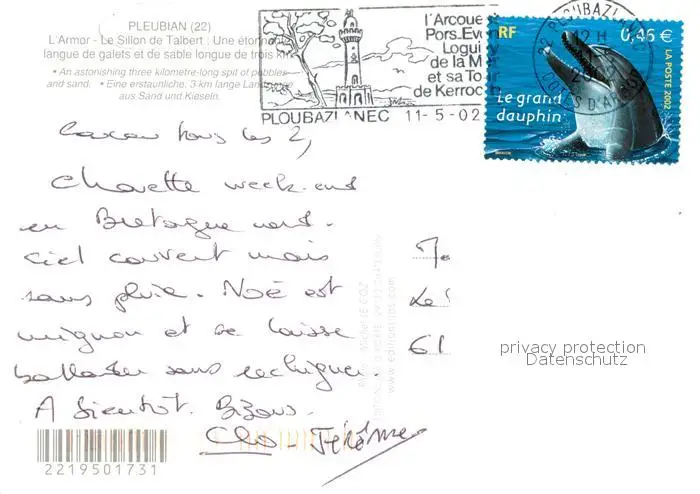 PLEUBIAN (22)
L'Armor - Le Sillon de Talbert : Une étonnante
langue de galets et de sable longue de trois km
• An astonishing three kilometre-long spit of pebbles
and sand. • Eine erstaunliche, 3 km lange
aus Sand und Kieseln.
l'Arcoue
Pors.Eve
Logui
de la M
et sa To
de Kerroc
PLOUBAZLANEC 11-5-02
22 PLOUBAZLANEC
12 H
COTES D'ARMOR
RF 0,46 €
LA POSTE 2002
Le grand
dauphin
Coucou vous les 2,
Chouette week-end
en Bretagne nord.
ciel couvert mais
sans pluie. Noé est
mignon et se laisse
ballotter sans rechigner.
A bientôt. Bizous.
Clo - Jérôme
Le
61
privacy protection
Datenschutz
2219501731